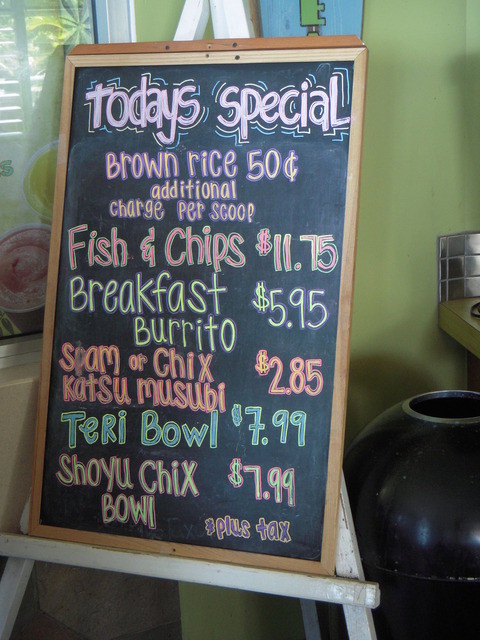 todays special
Brown rice 50¢
additional
charge per scoop
Fish & Chips $11.75
Breakfast $5.95
Burrito
Spam or Chix
Katsu musubi $2.85
Teri Bowl $7.99
Shoyu Chix $7.99
Bowl
*plus tax